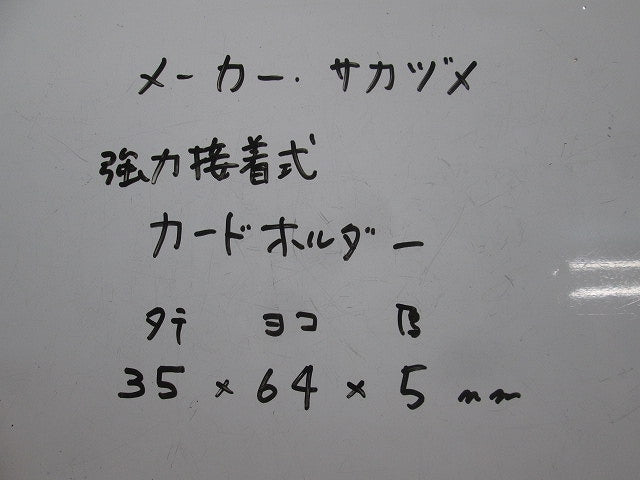 メーカー. サカヅメ
強力接着式
カードホルダー
タテ ヨコ 厚
35 × 64 × 5 mm